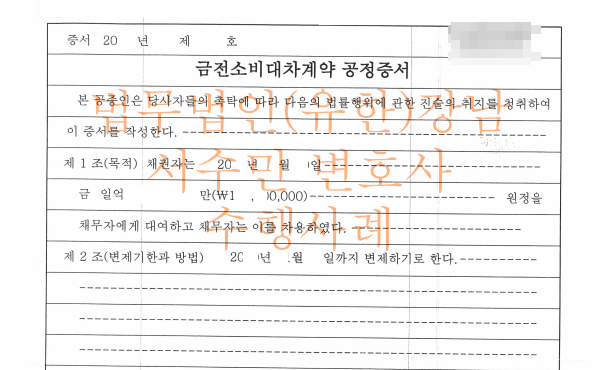 증서 20 년 제 호
금전소비대차계약 공정증서
본 공증인은 당사자들의 촉탁에 따라 다음의 법률행위에 관한 진술의 취지를 청취하여
이 증서를 작성한다.
제 1 조(목적) 채권자는 20 년 월 일
금 일억 만(₩1 , 00,000) 원정을
채무자에게 대여하고 채무자는 이를 차용하였다.
제 2 조(변제기한과 방법) 20 년 월 일까지 변제하기로 한다.
법무법인(유한)장남
서수민 변호사
수행사례